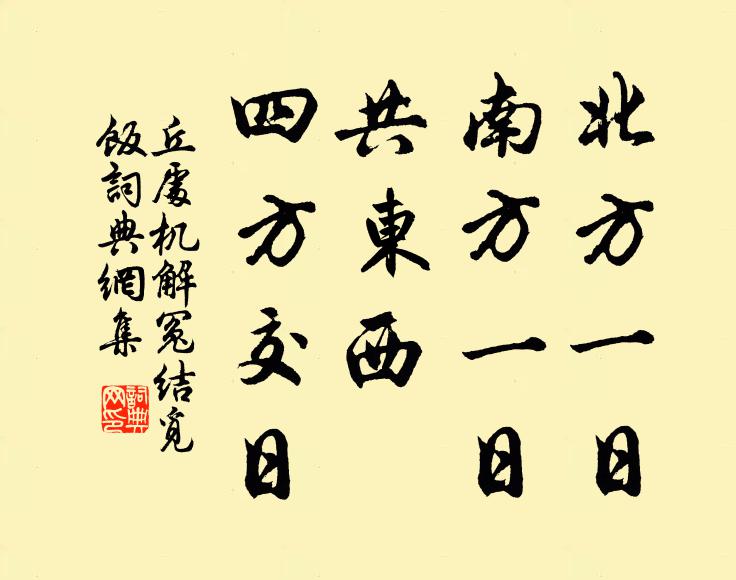 北方一日
南方一日
共東西
四方交日
丘處机解冤結覓
飯詞典網集
詞典
网印